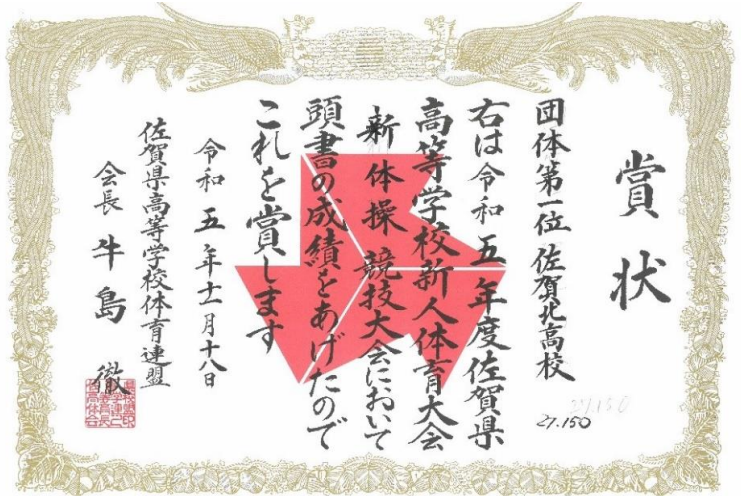 賞状
団体第一位 佐賀北高校
27.150
27.150
右は令和五年度佐賀県
高等学校新人体育大会
新体操競技大会において
頭書の成績をあげたので
これを賞します
令和五年十一月十八日
佐賀県高等学校体育連盟
会長 牛島 徹